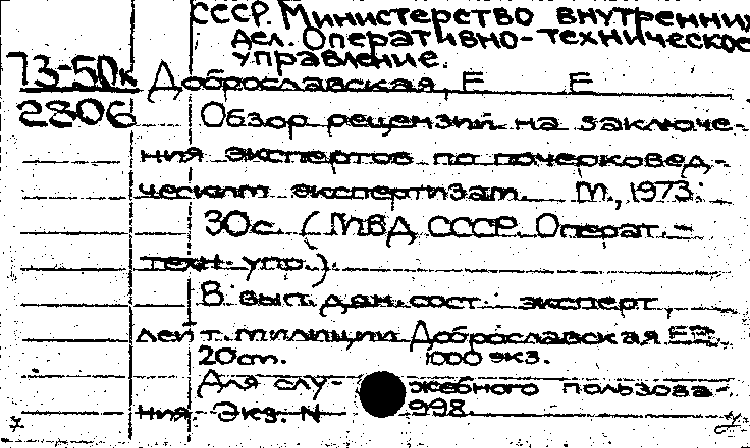 СССР. Министерство внутренних
дел. Оперативно-техническое
управление.
73-50к Доброславская, Е Е
2806 Обзор рецензий на заключе-
ния экспертов по почерковед-
ческим экспертизам. М., 1973.
30с. (МВД СССР. Операт.-
техн. упр.).
В вып. дан. сост.: эксперт
лейт. милиции Доброславская Е.Е.
20сп. 1000 экз.
Для слу- жебного пользова-
ния Экз. N 998.